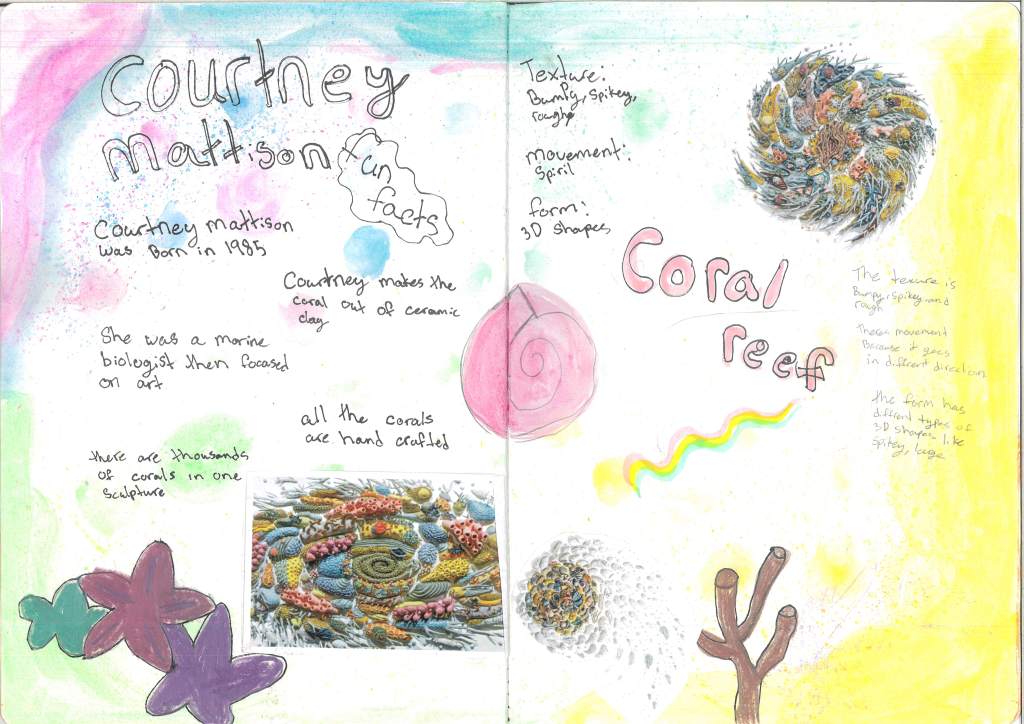 Courtney
Mattison
fun
facts
Courtney mattison
was Born in 1985
Courtney makes the
coral out of ceramic
clay
She was a marine
biologist then focased
on art
all the corals
are hand crafted
there are thousands
of corals in one
sculpture
Texture:
Bumpy, Spikey,
rough
movement:
Spiril
form:
3D shapes
Coral
reef
The texure is
Bumpy, Spikey and
rough
Theres movement
Because it goes
in different direction
the form has
diffrent types of
3D shapes like
Spikey, large